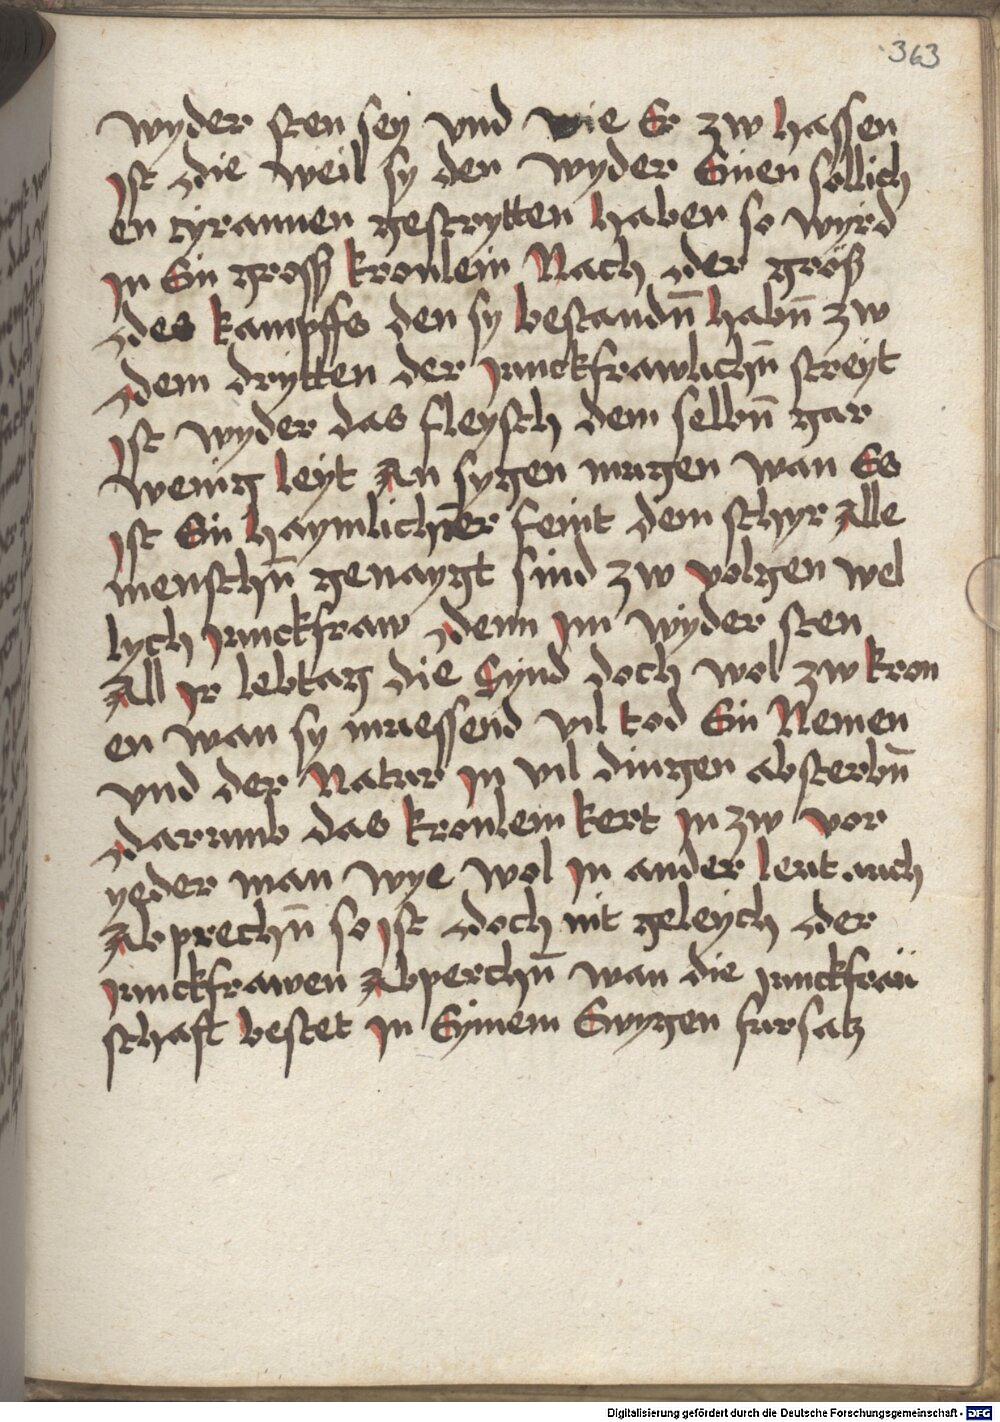 363
wyder sten sey vnd wie Er zw hassen
Ist die weil sy den wyder Einen sollich
en tyrannen gestrytten haben so wyrd
In Ein gross kronlein Nach der größ
des kampffs den sy bestandn̄ habn̄ zw
dem drytten der Junckfrawlichn̄ streyt
Ist wyder das fleysch dem selbn̄ gar
wenig leyt An sygen mugen wan Es
Ist Ein haymlicher feint dem schyr Alle
menschn̄ genaygt sind zw volgen wel
lych Junckfraw denn Im wyder sten
All Ir lebtag die Synd doch wol zw kron
en wan sy muessend vil tod Ein Nemen
vnd der Natur In vil dingen absterbn̄
darumb das kronlein kert In zw vor
yeder man wye wol In ander leut auch
Abprechn̄ so Ist doch nit geleych der
Junckfrawen Abperchn̄ wan die Junckfraü
schaft bestet In Eynem Ewygen fursatz
Digitalisierung gefördert durch die Deutsche Forschungsgemeinschaft - DFG